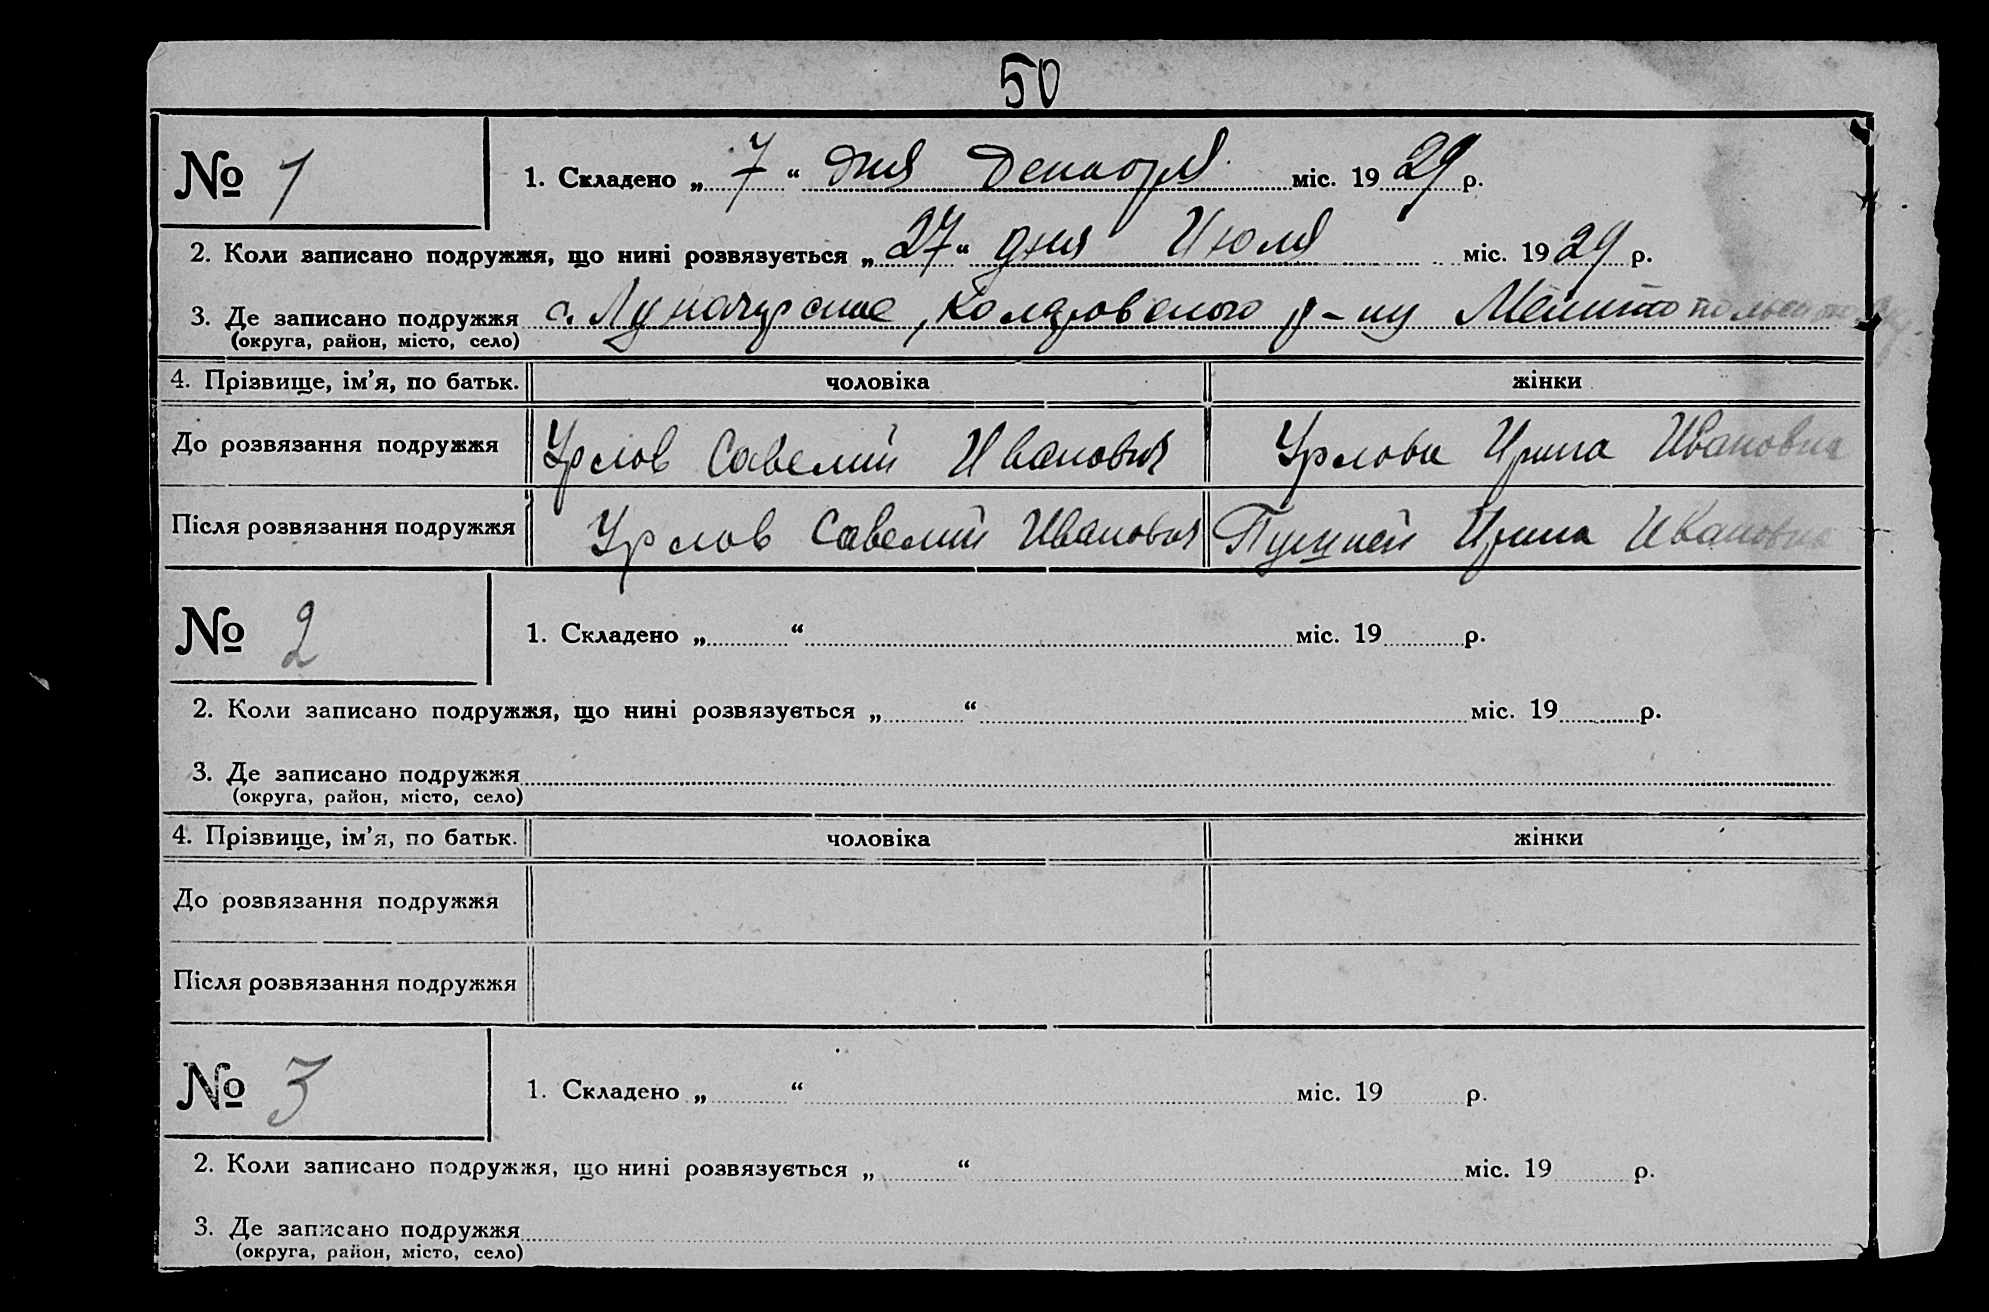 50
№ 1
1. Складено „ 7 “ дня Декабря міс. 1929 р.
2. Коли записано подружжя, що нині розвязується „ 27 “ дня Июля міс. 1929 р.
3. Де записано подружжя с. Луначарское, р-ну
(округа, район, місто, село)
4. Прізвище, ім’я, по батьк. чоловіка жінки
До розвязання подружжя Урлов Савелий Иванович Урлова Ирина Ивановна
Після розвязання подружжя Урлов Савелий Иванович Ирина Ивановна
№ 2
1. Складено „ “ міс. 19 р.
2. Коли записано подружжя, що нині розвязується „ “ міс. 19 р.
3. Де записано подружжя
(округа, район, місто, село)
4. Прізвище, ім’я, по батьк. чоловіка жінки
До розвязання подружжя
Після розвязання подружжя
№ 3
1. Складено „ “ міс. 19 р.
2. Коли записано подружжя, що нині розвязується „ “ міс. 19 р.
3. Де записано подружжя
(округа, район, місто, село)